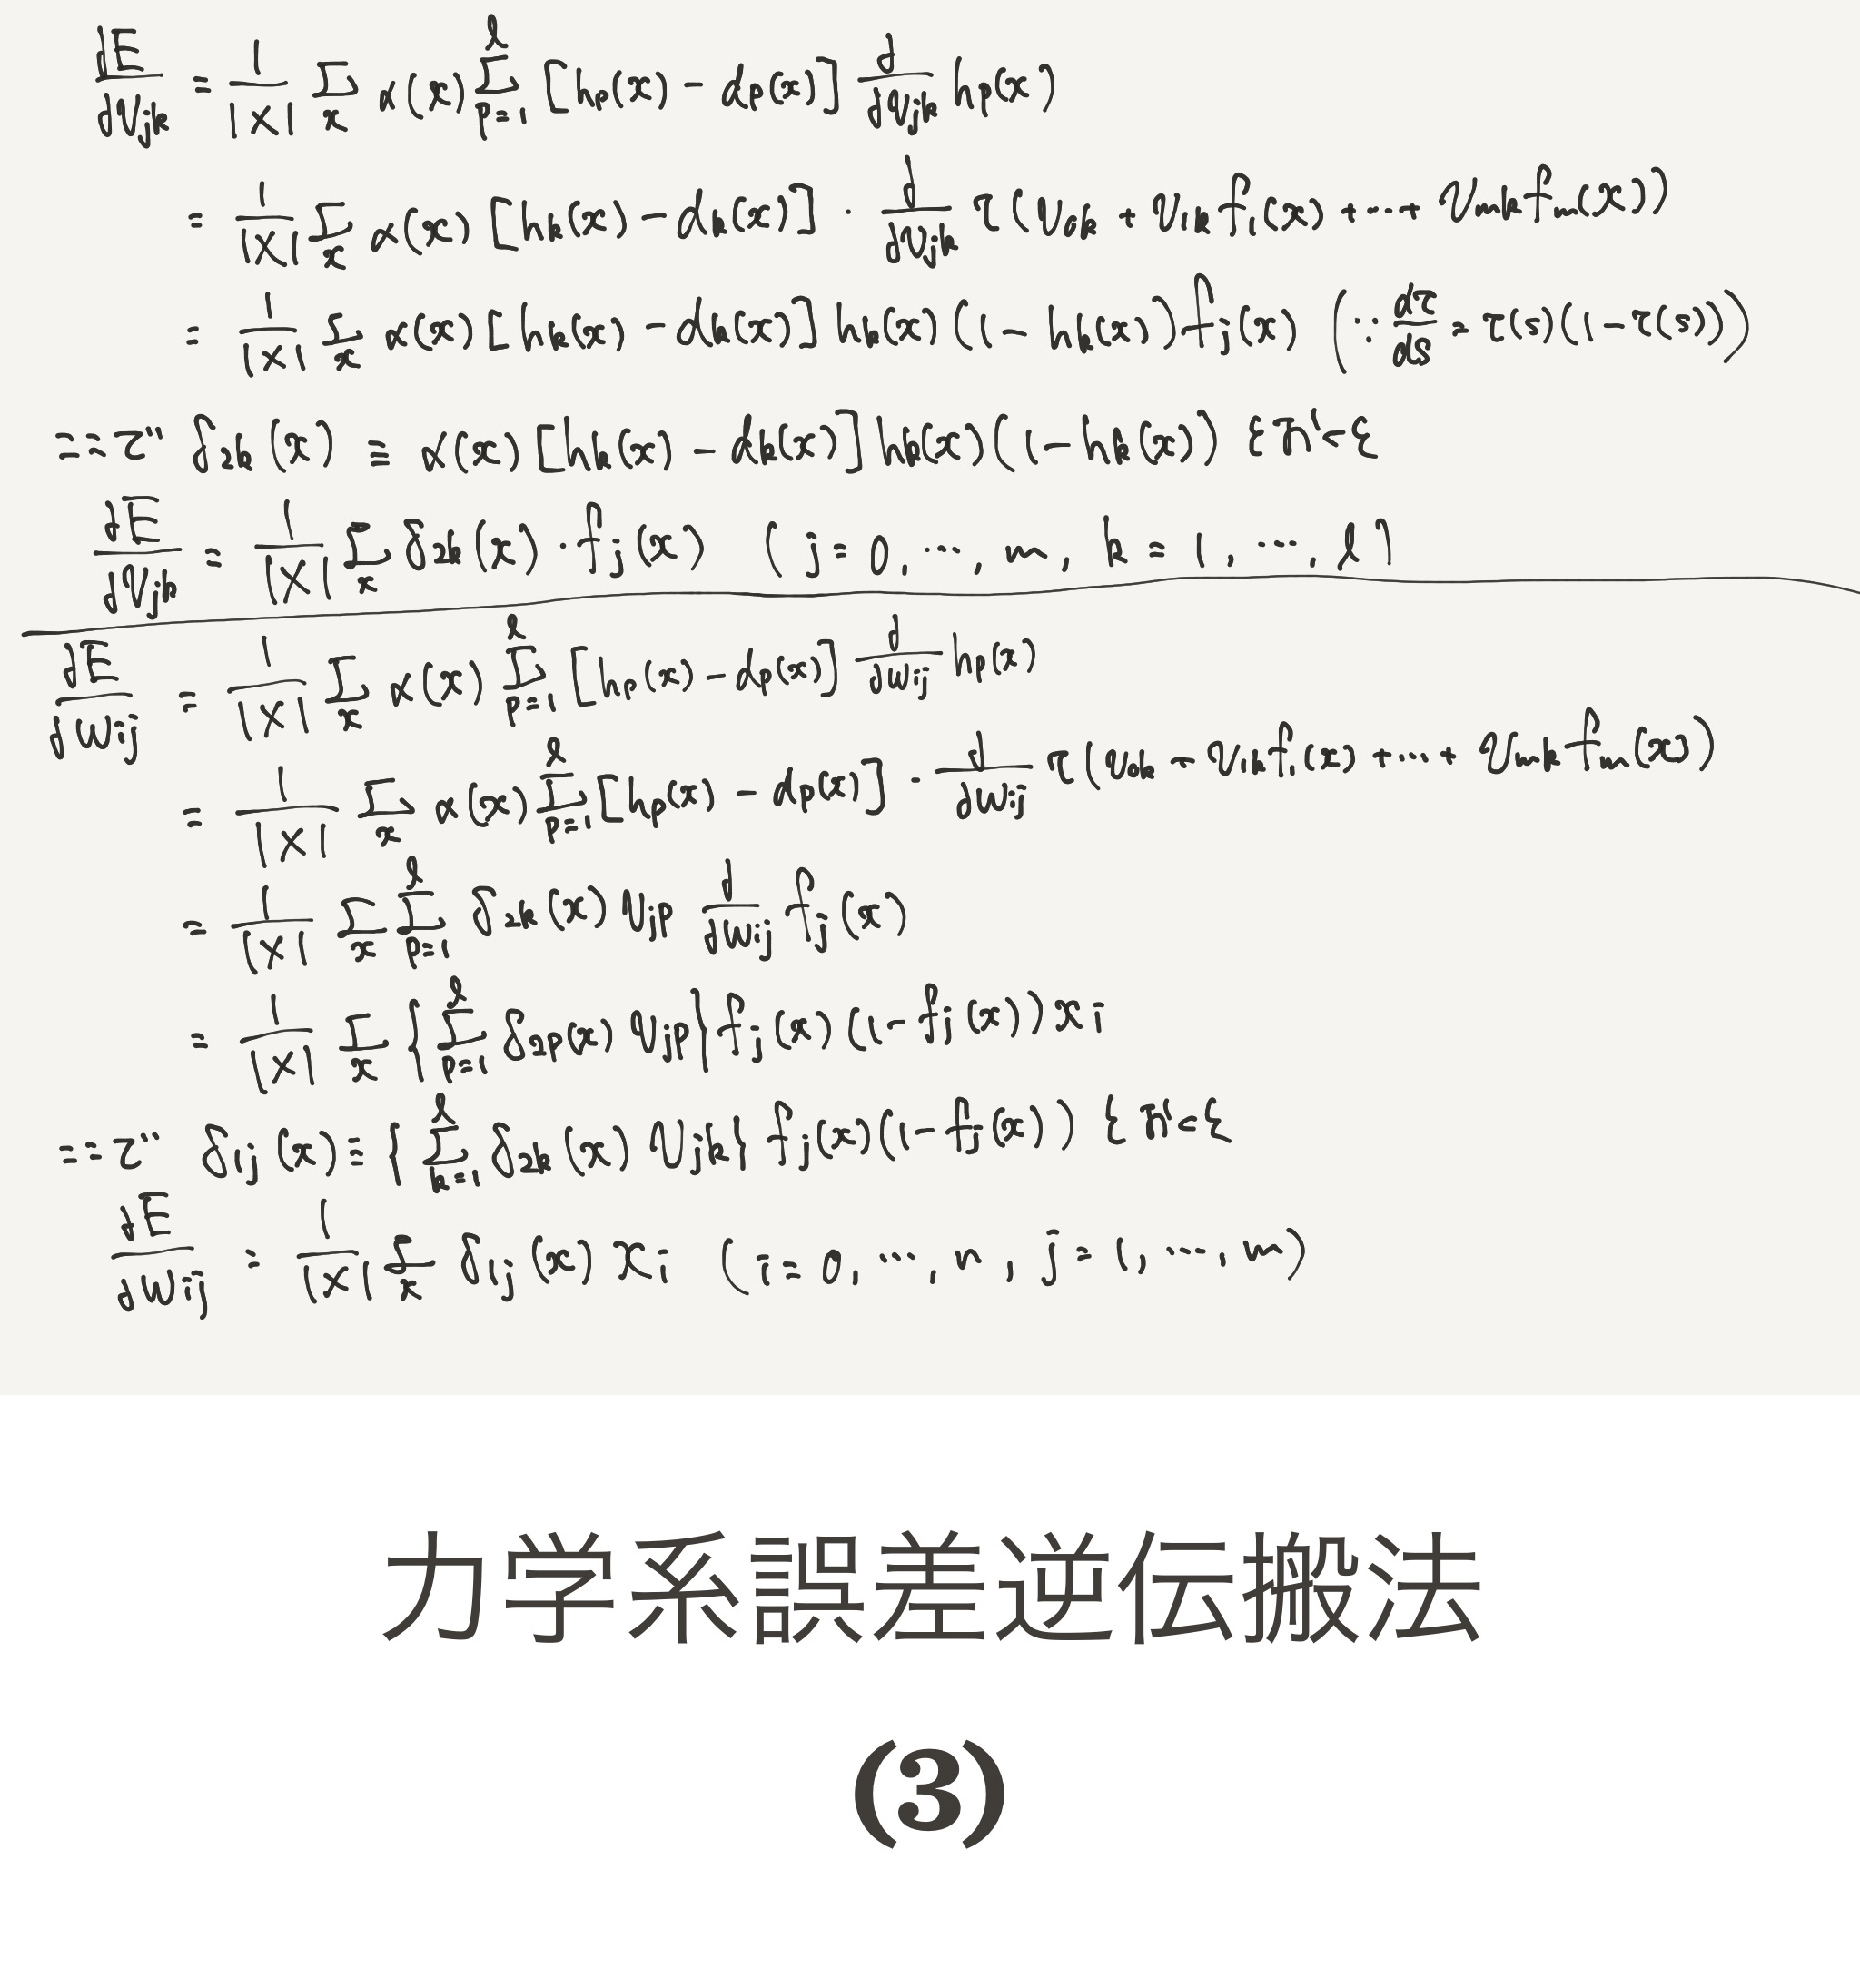 dE/dv_jk = 1/|X| Σ_x α(x) Σ_{p=1}^{l} [h_p(x) - d_p(x)] d/dv_jk h_p(x)
= 1/|X| Σ_x α(x) [h_k(x) - d_k(x)] · d/dv_jk τ(v_0k + v_1k f_1(x) + ... + v_mk f_m(x))
= 1/|X| Σ_x α(x) [h_k(x) - d_k(x)] h_k(x) (1 - h_k(x)) f_j(x) (∵ dτ/ds = τ(s)(1 - τ(s)))
ここで δ_2k(x) ≡ α(x) [h_k(x) - d_k(x)] h_k(x) (1 - h_k(x)) とおくと
dE/dv_jk = 1/|X| Σ_x δ_2k(x) · f_j(x) (j = 0, ..., m, k = 1, ..., l)
dE/dw_ij = 1/|X| Σ_x α(x) Σ_{p=1}^{l} [h_p(x) - d_p(x)] d/dw_ij h_p(x)
= 1/|X| Σ_x α(x) Σ_{p=1}^{l} [h_p(x) - d_p(x)] · d/dw_ij τ(v_0k + v_1k f_1(x) + ... + v_mk f_m(x))
= 1/|X| Σ_x Σ_{p=1}^{l} δ_2k(x) v_jp d/dw_ij f_j(x)
= 1/|X| Σ_x {Σ_{p=1}^{l} δ_2p(x) v_jp} f_j(x) (1 - f_j(x)) x_i
ここで δ_1j(x) ≡ {Σ_{k=1}^{l} δ_2k(x) v_jk} f_j(x) (1 - f_j(x)) とおくと
dE/dw_ij = 1/|X| Σ_x δ_1j(x) x_i (i = 0, ..., n, j = 1, ..., m)
力学系誤差逆伝搬法
(3)